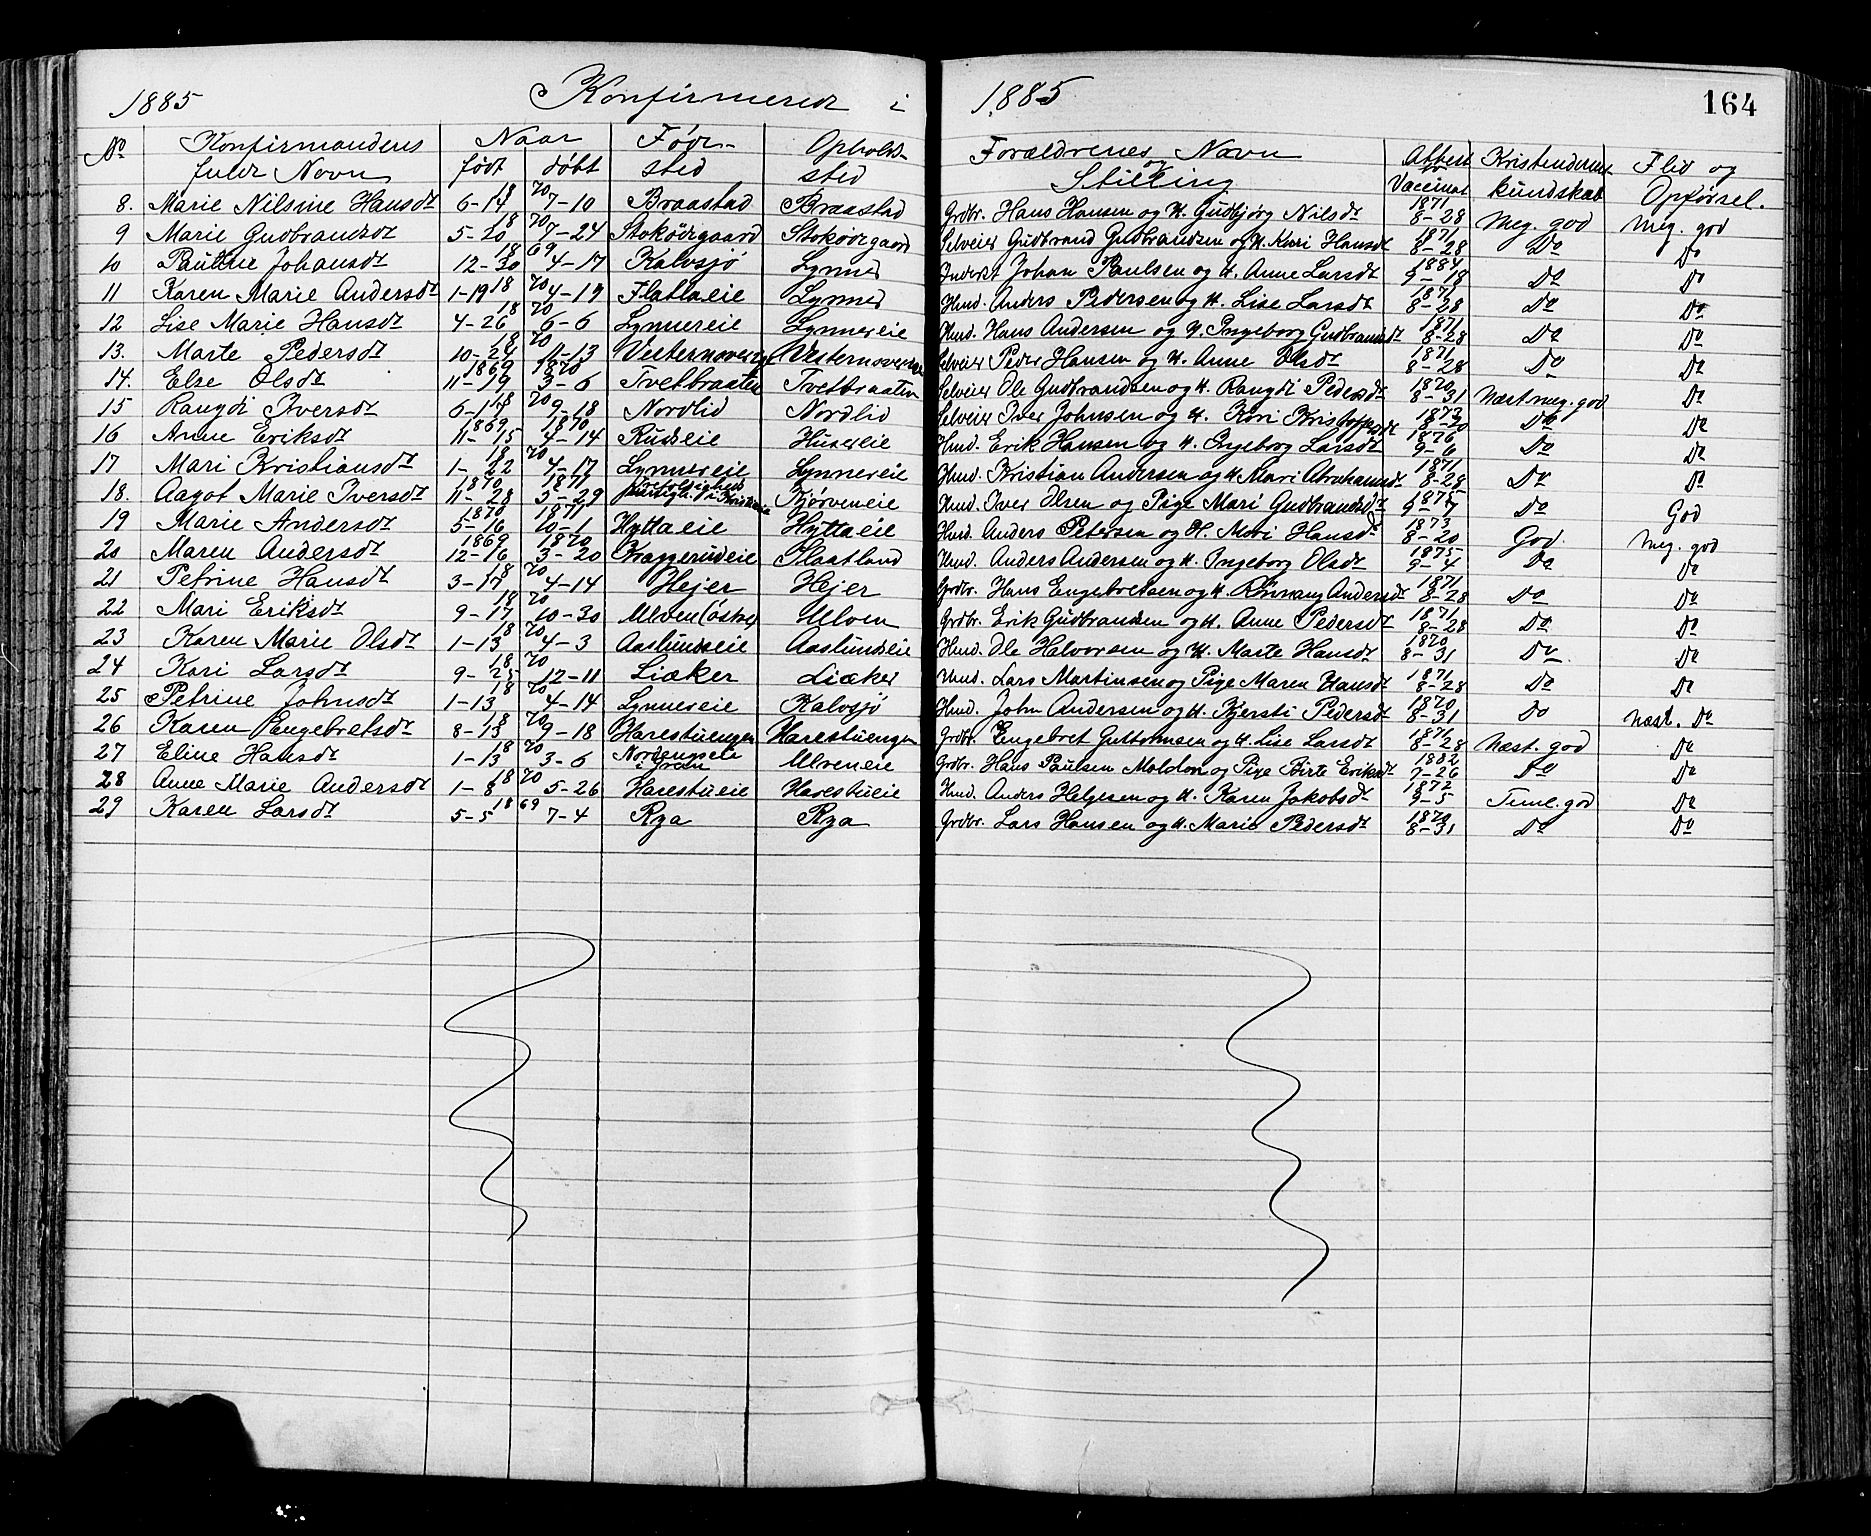 1885 Konfirmerede i 1885 164
No Konfirmandens Naar Føde- Opholds- Forældrenes Navn Attest Kristendoms Flid og
fulde Navn født døbt sted sted og Stilling Vaccinat kundskab Opførsel.
8. Marie Nilsine Hansdt 6-14 18 70 7-10 Braastad Braastad Grdbr. Hans Hansen og H. Gudbjørg Nilsdt 1871 8-28 Meg. god Meg. god
9 Marie Gudbrandsdt 5-20 18 70 7-24 Stokørgaard Stokørgaard Selveier Gudbrand Gudbrandsen og H. Kari Hansdt 1871 8-28 Do Do
10 Pauline Johansdt 12-30 18 69 4-17 Kalvsjø Lynne Inderst Johan Paulsen og H. Anne Larsdt 1884 9-18 Do Do
11 Karen Marie Andersdt 1-19 18 70 4-19 Flattaeie Lynne Hmd. Anders Pedersen og H. Lise Larsdt 1871 8-28 Do Do
12 Lise Marie Hansdt 4-26 18 70 6-6 Lynnereie Lynnereie Hmd. Hans Andersen og H. Ingeborg Gudbrandsdt 1871 8-28 Do Do
13. Marte Pedersdt 10-24 18 70 11-13 Selveier Peder Hansen og H. Anne Olsdt 1871 8-28 Do Do
14. Else Olsdt 1869 11-19 1870 3-6 Tvetbraaten Tvetbraaten Selveier Ole Gudbrandsen og H. Rangdi Pedersdt 1870 8-31 Næst meg. god Do
15 Rangdi Iversdt 6-17 18 70 9-18 Nordlid Nordlid Selveier Iver Johnsen og H. Kari Kristoffersdt 1873 8-20 Do Do
16 Anne Eriksdt 1869 11-15 1870 4-14 Rudseie Husereie Hmd. Erik Hansen og H. Ingeborg Larsdt 1876 9-6 Do Do
17 Mari Kristiansdt 1-22 18 70 4-17 Lynnereie Lynnereie Hmd. Kristian Andersen og H. Mari Abrahamsdt 1871 8-28 Do Do
18. Aagot Marie Iversdt 1870 11-28 1871 5-29 i Kristiania Kjørveneie Hmd. Iver Olsen og Pige Mari Gudbrandsdt 1875 9-7 Do God
19 Marie Andersdt 1870 5-16 1871 10-1 Hyttaeie Hyttaeie Hmd. Anders Petersen og H. Mari Hansdt 1873 8-20 God. Meg. god
20 Maren Andersdt 1869 12-16 1870 3-20 Kraggerudeie Slaatland Hmd. Anders Andersen og H. Ingeborg Olsdt 1875 9-4 Do Do
21 Petrine Hansdt 3-17 18 70 4-14 Hejer Hejer Grdbr. Hans Engebretsen og H. Rønnaug Andersdt 1871 8-28 Do Do
22 Mari Eriksdt 9-17 18 70 10-30 Ulven (østre) Ulven Grdbr. Erik Gudbrandsen og H. Anne Pedersdt 1871 8-28 Do Do
23 Karen Marie Olsdt 1-13 18 70 4-3 Aaslundseie Aaslundseie Hmd. Ole Halvorsen og H. Marte Hansdt 1870 8-31 Do Do
24 Kari Larsdt 9-25 18 70 12-11 Liøker Liøker Hmd. Lars Martinsen og Pige Maren Hansdt 1871 8-28 Do Do
25 Petrine Johnsdt 1-13 18 70 4-14 Lynnereie Kalvsjø Hmd. John Andersen og H. Kjersti Pedersdt 1870 8-31 Do Næst. Do
26 Karen Engebretsdt 8-13 18 70 9-18 Harestuengen Harestuengen Grdbr. Engebret Guttormsen og H. Lise Larsdt 1871 8-28 Næst. god Do
27 Eline Hansdt 1-13 18 70 3-6 Nordengseie i Gran Ulveneie Grdbr. Hans Paulsen Molden og Pige Birte Eriksdt 1882 7-26 Do Do
28 Anne Marie Andersdt 1-8 18 70 5-26 Harestueie Harestueie Hmd. Anders Helgesen og H. Karen Jakobsdt 1872 9-5 Teml. god Do
29 Karen Larsdt 5-5 18 69 7-4 Rya Rya Grdbr. Lars Hansen og H. Marie Pedersdt 1870 8-31 Do Do